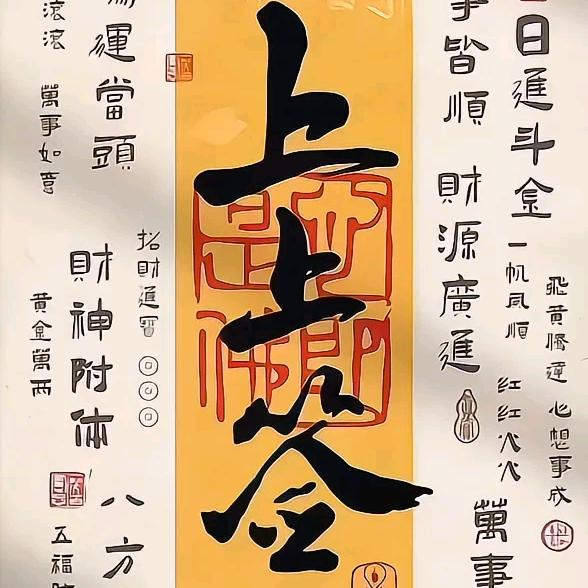 日進斗金
飛黃騰達
心想事成
一帆风順
紅紅火火
事皆順
財源廣進
萬事
上上签
心即是佛
運當頭
招財進寶
財神附体
八方
滾滾
萬事如意
黃金萬两
五福